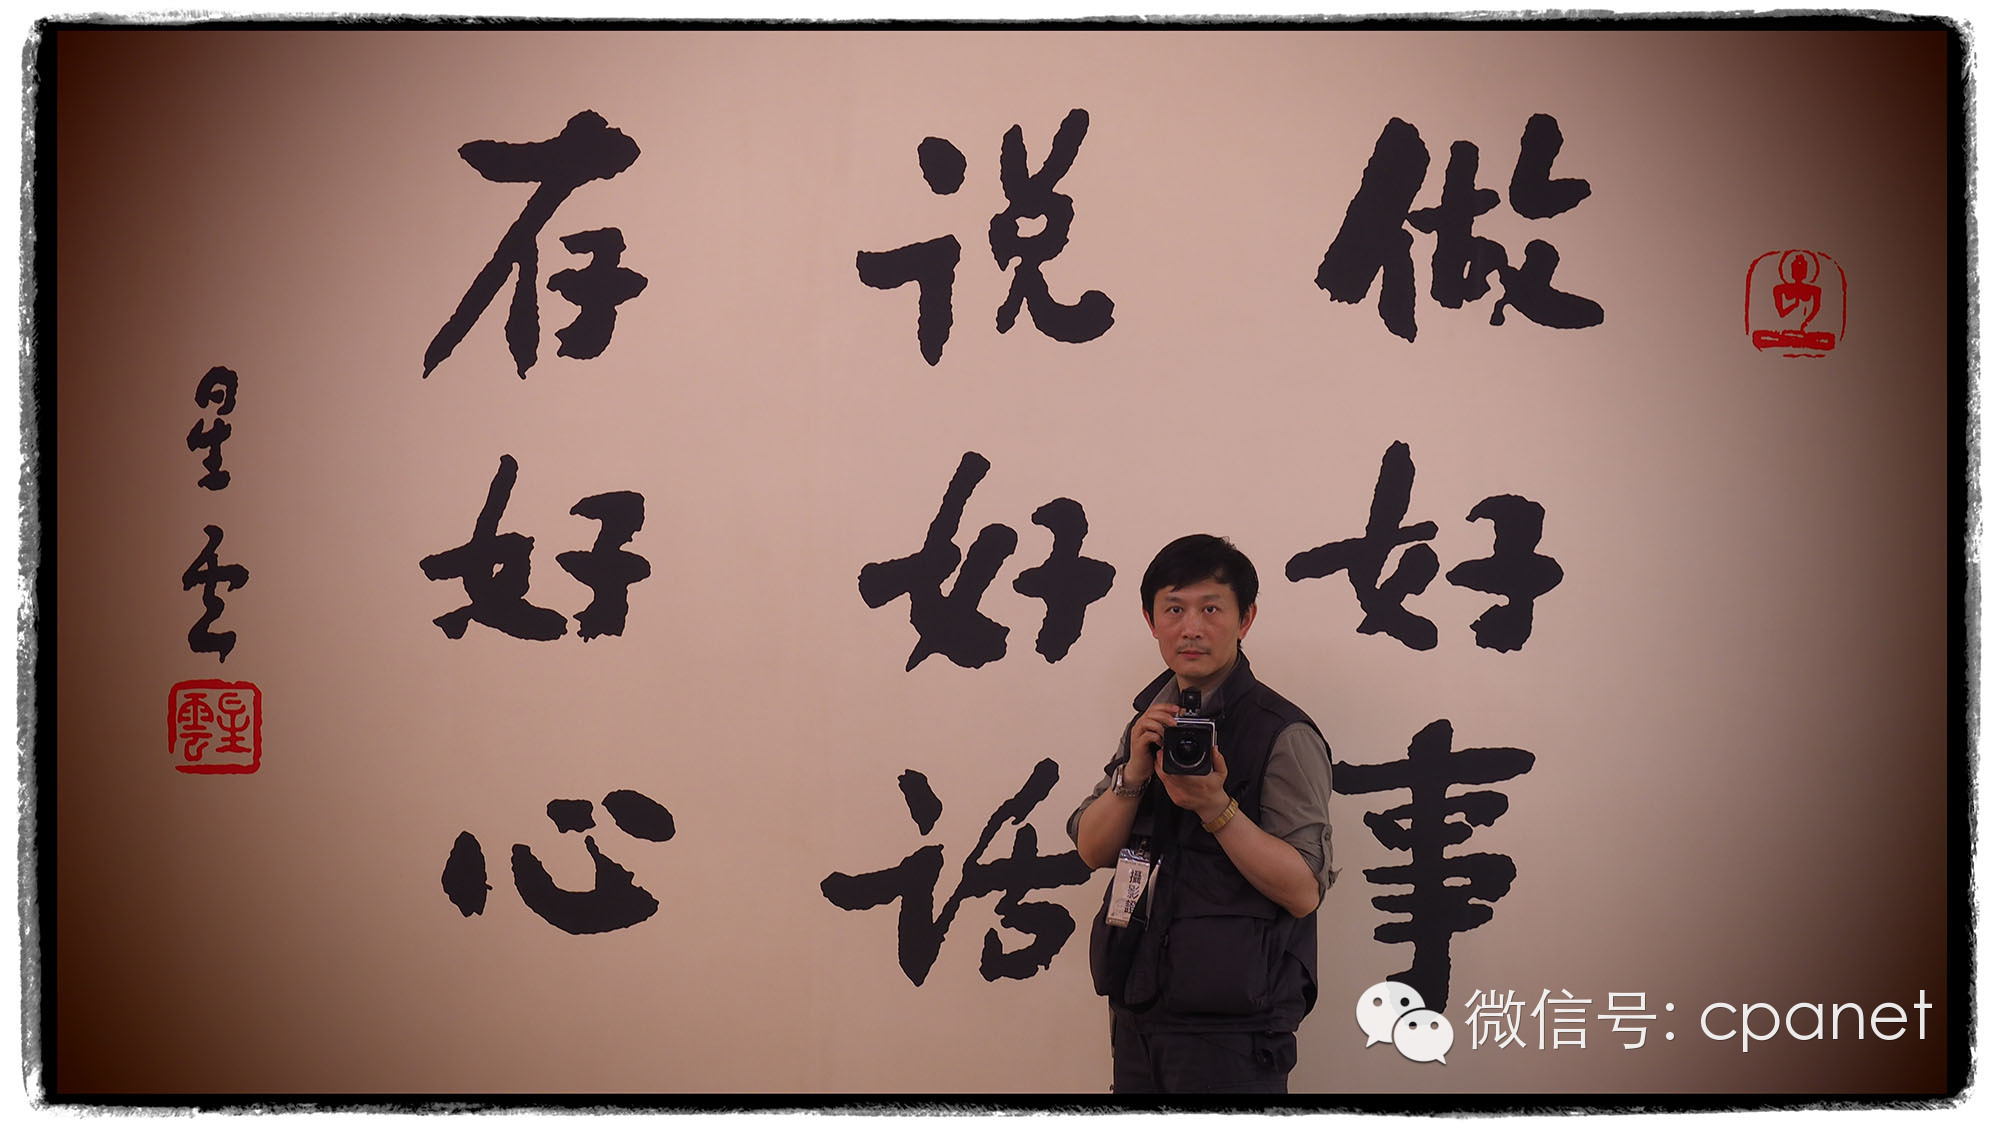 做好事
说好话
存好心
星雲
星雲
攝影證
微信号: cpanet